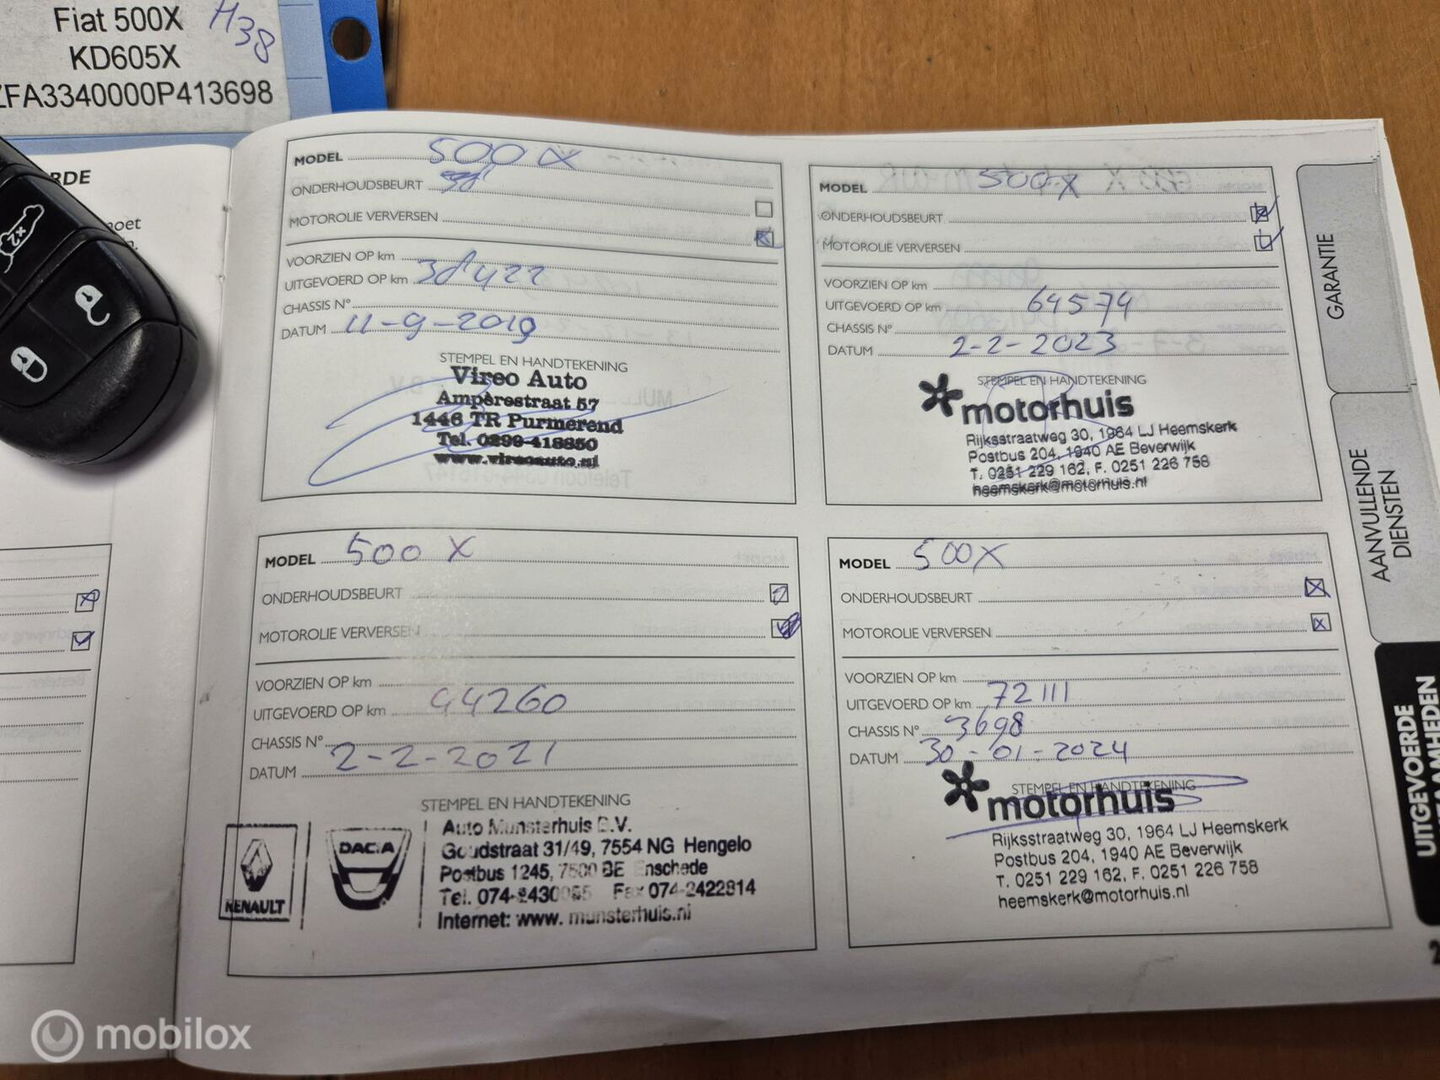 Fiat 500X H38
KD605X
ZFA3340000P413698
RDE
MODEL 500X
ONDERHOUDSBEURT
MOTOROLIE VERVERSEN
VOORZIEN OP km
UITGEVOERD OP km 38422
CHASSIS N°
DATUM 11-9-2019
STEMPEL EN HANDTEKENING
Vireo Auto
Ampèrestraat 57
1446 TR Purmerend
Tel. 0299-418850
www.vireoauto.nl
MODEL 500X
ONDERHOUDSBEURT
MOTOROLIE VERVERSEN
VOORZIEN OP km
UITGEVOERD OP km 64574
CHASSIS N°
DATUM 2-2-2023
STEMPEL EN HANDTEKENING
motorhuis
Rijksstraatweg 30, 1964 LJ Heemskerk
Postbus 204, 1940 AE Beverwijk
T. 0251 229 162, F. 0251 226 758
heemskerk@motorhuis.nl
MODEL 500 X
ONDERHOUDSBEURT
MOTOROLIE VERVERSEN
VOORZIEN OP km
UITGEVOERD OP km 44260
CHASSIS N°
DATUM 2-2-2021
STEMPEL EN HANDTEKENING
RENAULT
DACIA
Auto Munsterhuis B.V.
Goudstraat 31/49, 7554 NG Hengelo
Postbus 1245, 7500 BE Enschede
Tel. Fax 074-2422814
Internet: www. munsterhuis.nl
MODEL 500X
ONDERHOUDSBEURT
MOTOROLIE VERVERSEN
VOORZIEN OP km
UITGEVOERD OP km 72111
CHASSIS N° 3698
DATUM 30-01-2024
STEMPEL EN HANDTEKENING
motorhuis
Rijksstraatweg 30, 1964 LJ Heemskerk
Postbus 204, 1940 AE Beverwijk
T. 0251 229 162, F. 0251 226 758
heemskerk@motorhuis.nl
GARANTIE
AANVULLENDE
DIENSTEN
UITGEVOERDE
mobilox